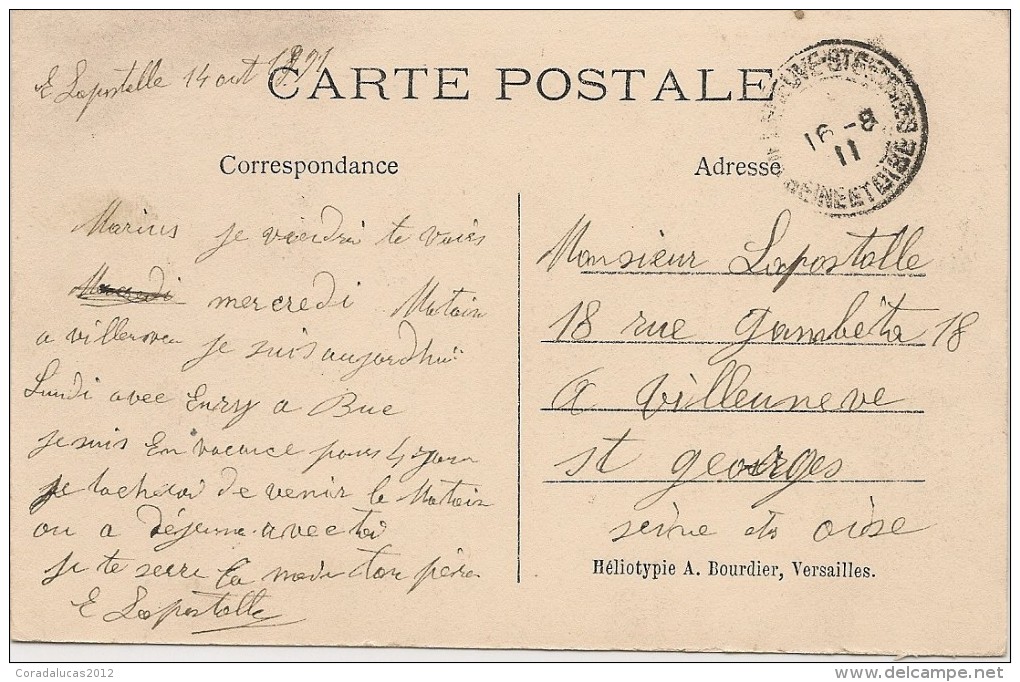 E Lapostolle 14 out 1911
CARTE POSTALE
VILLENEUVE-ST GEORGES
16 - 8
11
SEINE ET OISE
Correspondance
Adresse
Marius je viendrai te voir
Mercredi mercredi Matain
a villeneuve je suis aujordhui
Lundi avec Enry a Buc
je suis En vacance pour 4 jours
je tacherai de venir le Matain
ou a déjeune avec toi
je te serre la main ton père
E Lapostolle
Monsieur Lapostolle
18 rue Gambeta 18
a villeuneve
st georges
seine et oise
Héliotypie A. Bourdier, Versailles.
Coradalucas2012
delcampe.net